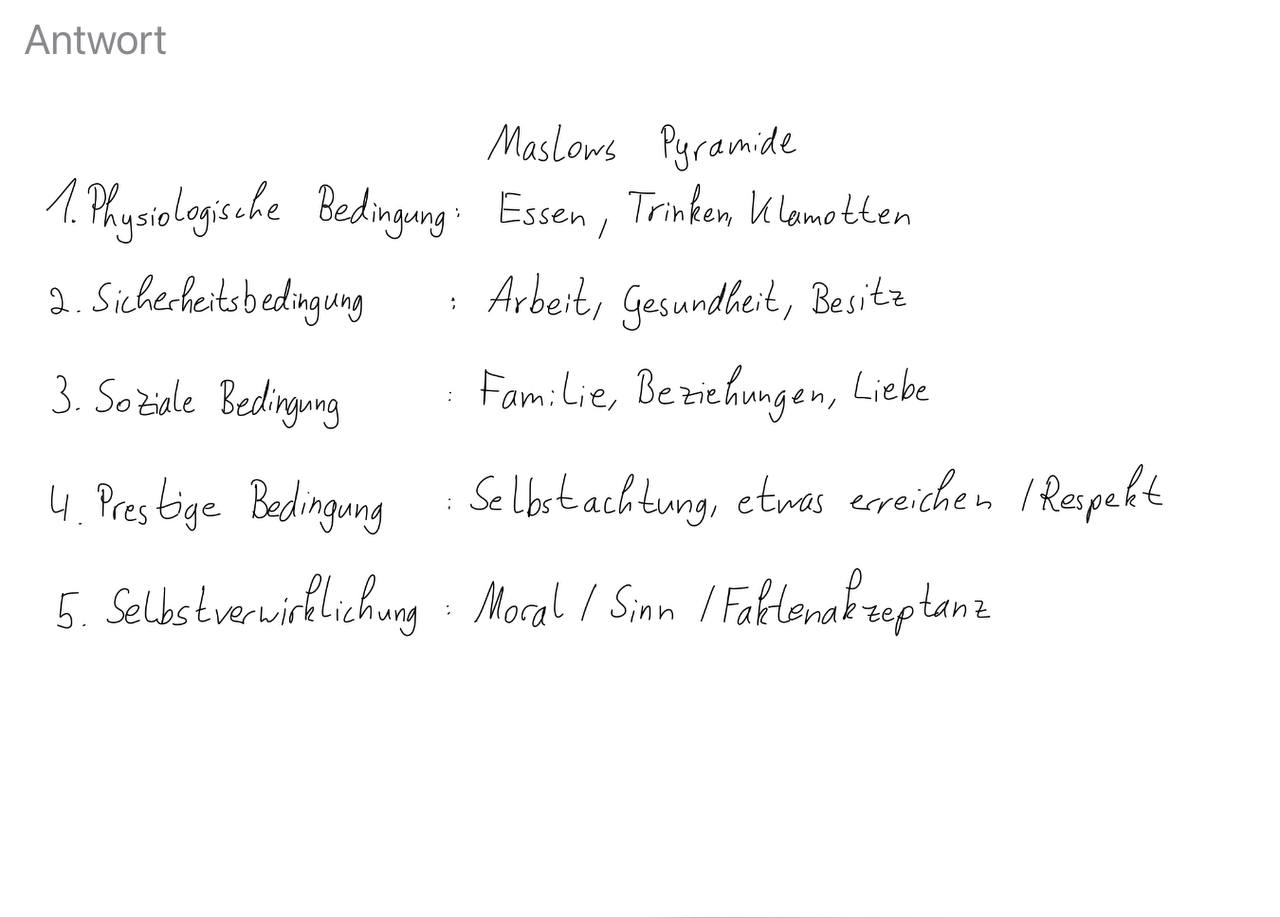 Antwort
Maslows Pyramide
1. Physiologische Bedingung: Essen, Trinken, Klamotten
2. Sicherheitsbedingung : Arbeit, Gesundheit, Besitz
3. Soziale Bedingung : Familie, Beziehungen, Liebe
4. Prestige Bedingung : Selbstachtung, etwas erreichen / Respekt
5. Selbstverwirklichung : Moral / Sinn / Faktenakzeptanz